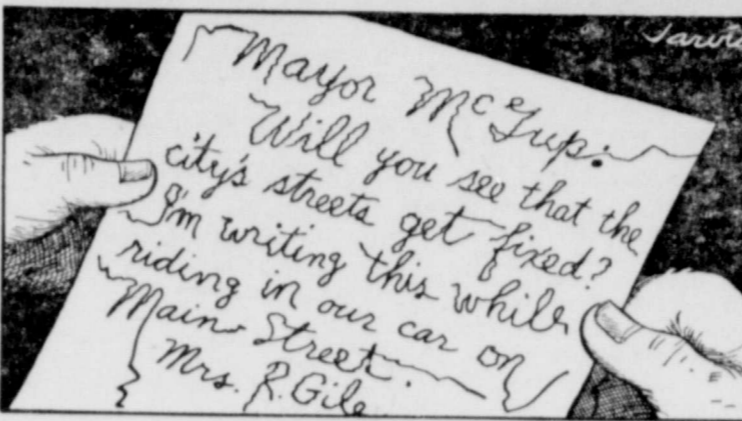 Jarvis
Mayor McGup:
Will you see that the
city's streets get fixed?
I'm writing this while
riding in our car on
Main Street.
Mrs. R. Gile